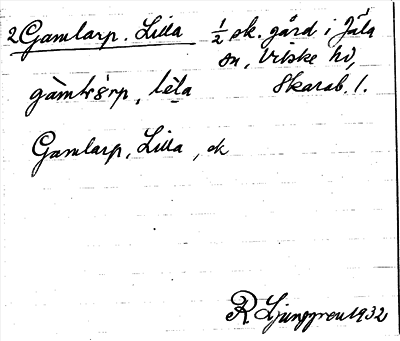 2 Gamlarp. Lilla ½ ek. gård i Jäla
sn, Vilske hd,
Skarab. l.
gàmlrp, lila
Gamlarp, Lilla, ek
R Ljunggren 1932